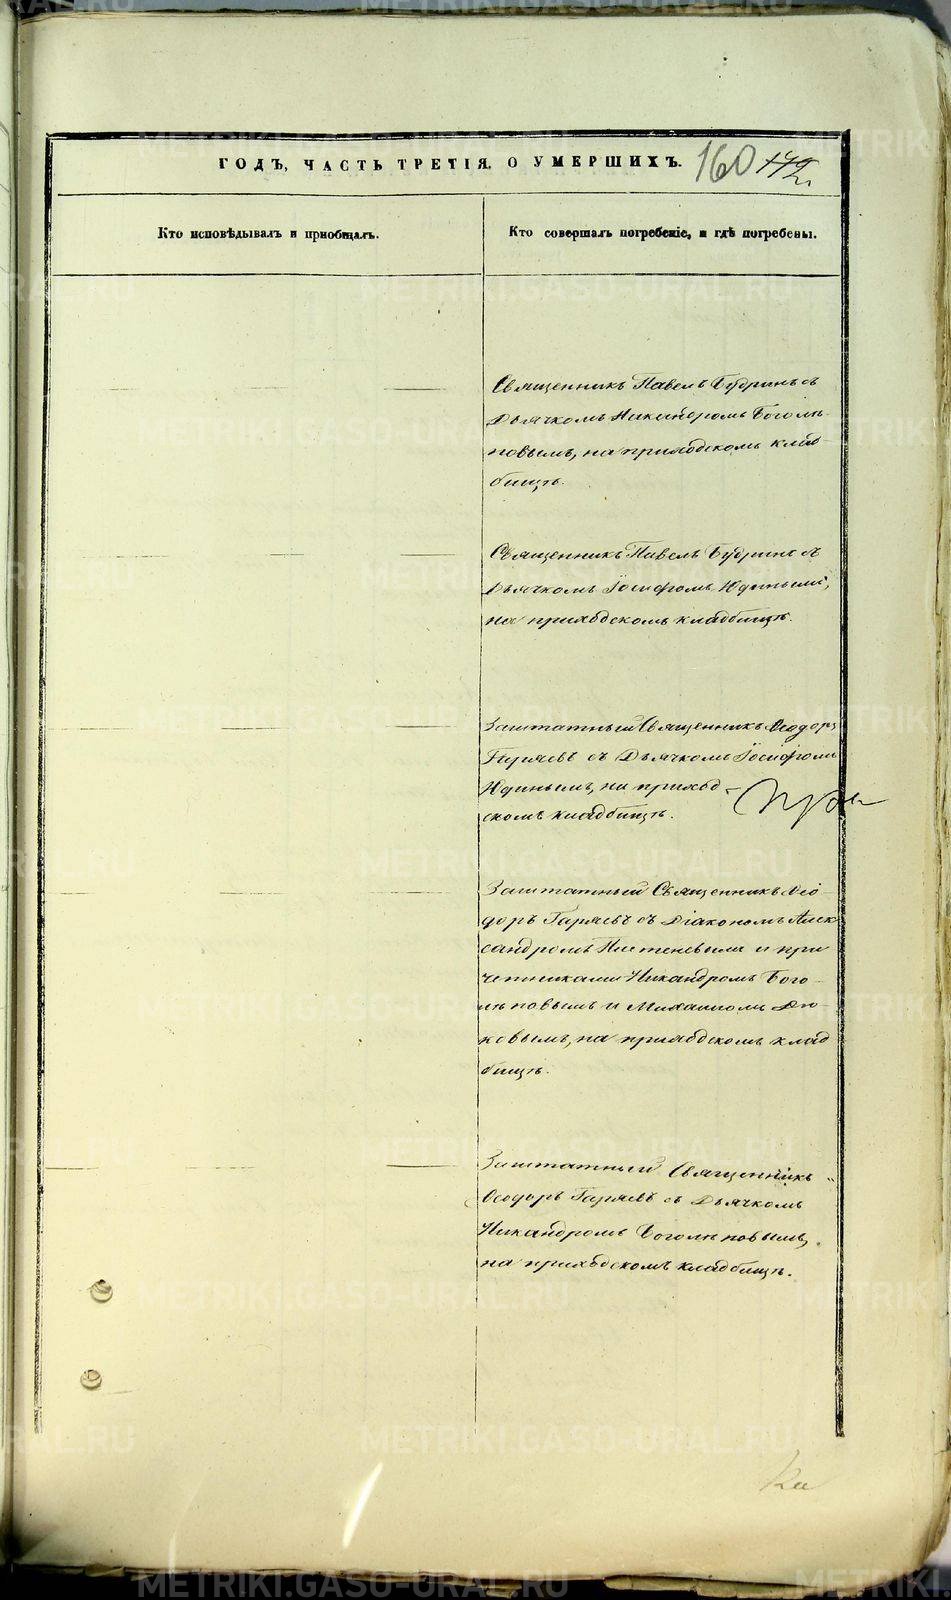 ГОДЪ, ЧАСТЬ ТРЕТІЯ, О УМЕРШИХЪ. 160
Кто исповѣдывалъ и пріобщалъ.
Кто совершалъ погребеніе, и гдѣ погребены.
Священникъ Павелъ Бубринъ съ
Дьячкомъ Никандромъ Боголѣ-
повымъ, на приходскомъ клад-
бищѣ.
Священникъ Павелъ Бубринъ съ
Дьячкомъ Іосифомъ Юдинымъ,
на приходскомъ кладбищѣ.
Заштатный Священникъ Ѳеодоръ
Гаряевъ съ Дьячкомъ Іосифомъ
Юдинымъ, на приход-
скомъ кладбищѣ.
Заштатный Священникъ Ѳео-
доръ Гаряевъ съ Діакономъ Алек
сандромъ и при
четниками Никандромъ Бого-
лѣповымъ и Михаиломъ
на приходскомъ клад
бищѣ.
Заштатный Священникъ
Ѳеодоръ Гаряевъ съ Дьячкомъ
Никандромъ Боголѣповымъ,
на приходскомъ кладбищѣ.
METRIKI.GASO-URAL.RU